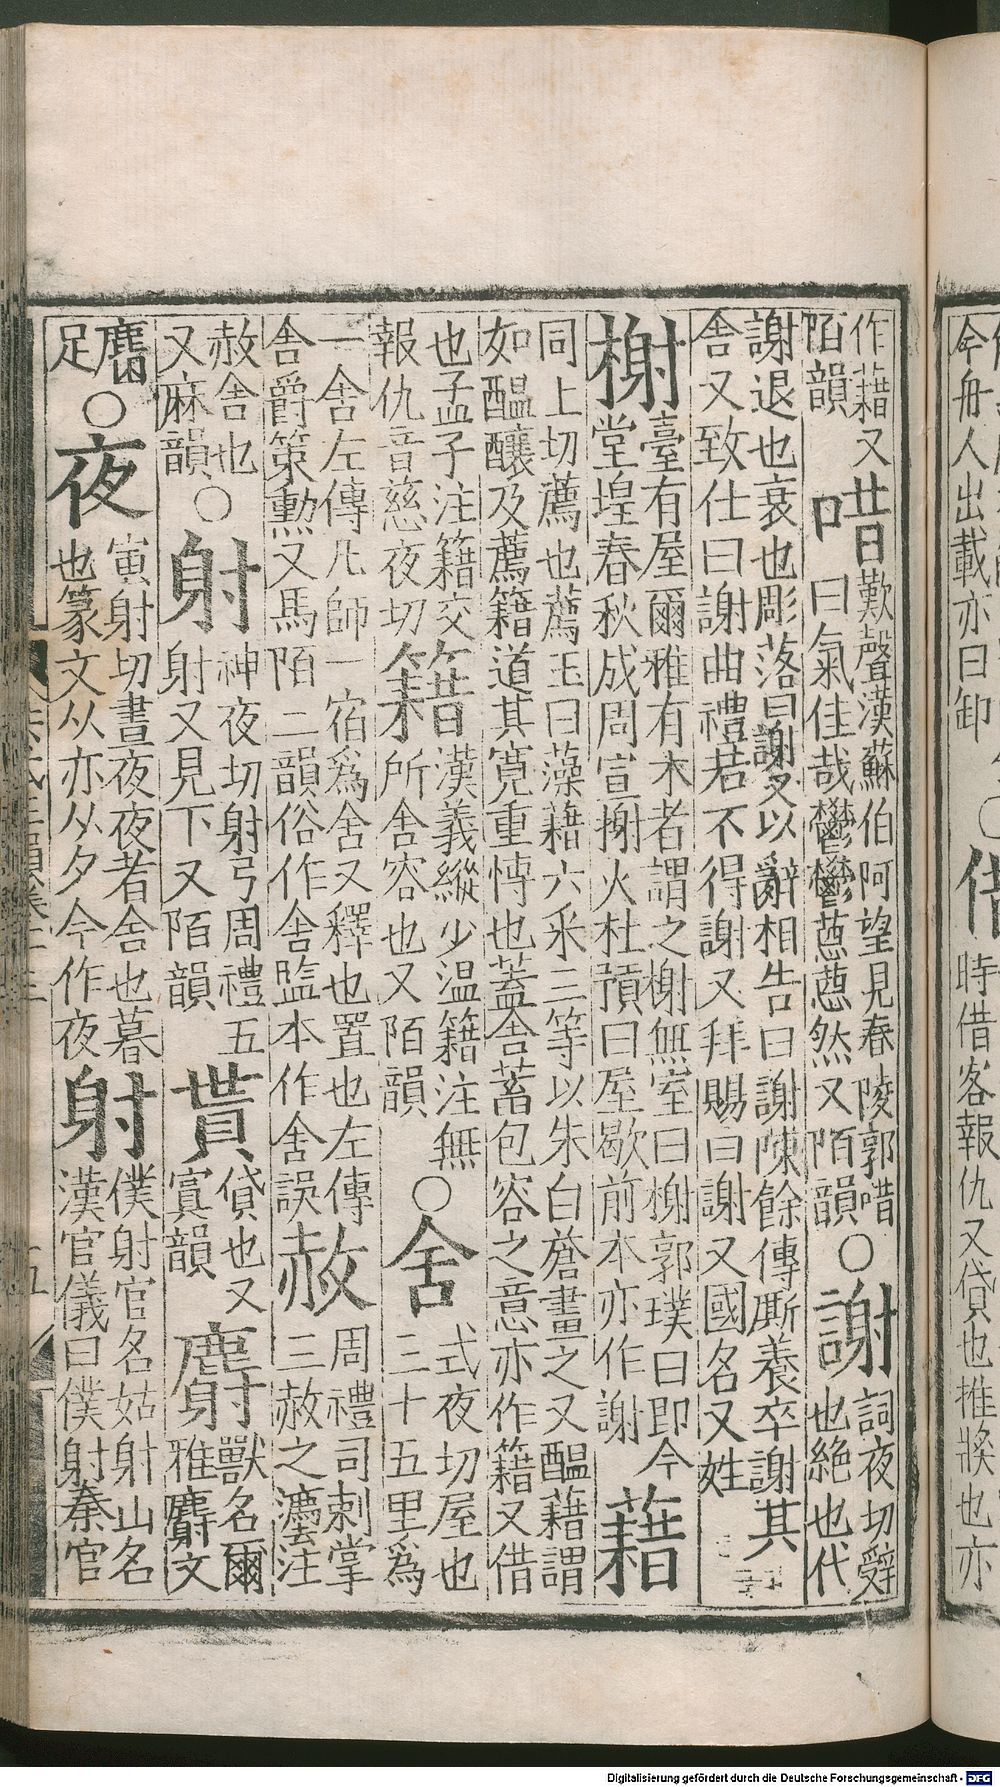 今舟人出載亦曰卸
時借客報仇又貸也推奬也亦
作藉又
陌韻
唶
歎聲漢蘇伯阿望見春陵郭唶
曰氣佳哉鬱鬱葱葱然又陌韻
○謝
詞夜切辭
也絶也代
謝退也衰也彫落曰謝又以辭相告曰謝陳餘傳厮養卒謝其
舍又致仕曰謝曲禮若不得謝又拜賜曰謝又國名又姓
榭
臺有屋爾雅有木者謂之榭無室曰榭郭璞曰即今
堂堭春秋成周宣榭火杜預曰屋歇前本亦作謝
藉
同上切薦也薦玉曰藻藉六采三等以朱白蒼畫之又醖藉謂
如醖釀及薦籍道其寛重愽也蓋含蓄包容之意亦作籍又借
也孟子注籍交
報仇音慈夜切
籍
漢義縱少温籍注無
所含容也又陌韻
○舍
式夜切屋也
三十五里爲
一舍左傳凡師一宿爲舍又釋也置也左傳
舍爵策勲又馬陌二韻俗作舎監本作舍誤
赦
周禮司刺掌
三赦之灋注
赦舍也
又麻韻
○射
神夜切射弓周禮五
射又見下又陌韻
貰
貸也又
寘韻
麝
獸名爾
雅麝父
麕
足
○夜
寅射切晝夜夜者舍也暮
也篆文从亦从夕今作夜
射
僕射官名姑射山名
漢官儀曰僕射秦官
Digitalisierung gefördert durch die Deutsche Forschungsgemeinschaft - DFG